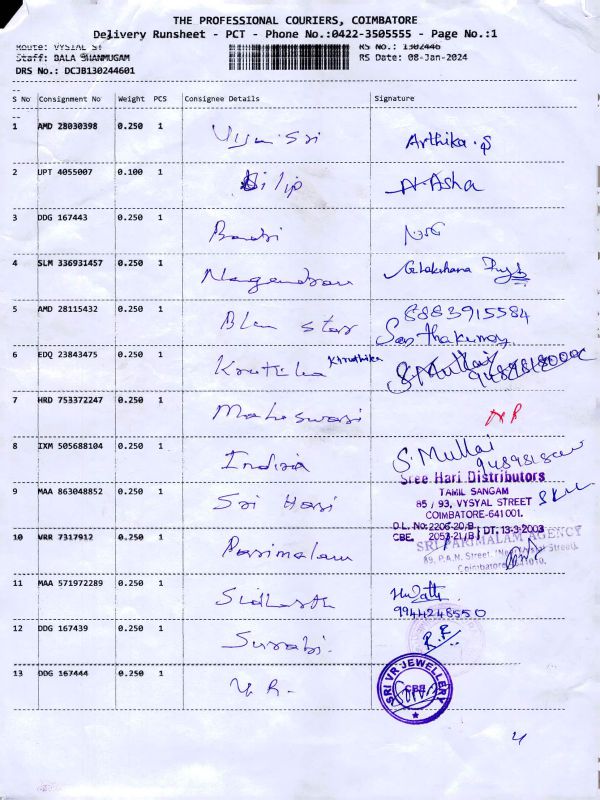 THE PROFESSIONAL COURIERS, COIMBATORE
Delivery Runsheet - PCT - Phone No.:0422-3505555 - Page No.:1
Route: VYSIAL ST
RS No.: 1302446
Staff: BALA SHANMUGAM
RS Date: 08-Jan-2024
DRS No.: DCJB130244601
S No Consignment No Weight PCS Consignee Details Signature
1 AMD 28030398 0.250 1 Arthika.
2 UPT 4055007 0.100 1 Dilip A. Asha
3 DDG 167443 0.250 1
4 SLM 336931457 0.250 1 Nagendran
5 AMD 28115432 0.250 1 Blue star 8883915584
6 EDQ 23843475 0.250 1 Kruthika Khruthika S. Mullai
7 HRD 753372247 0.250 1 Maheswari
8 IXM 505688104 0.250 1 Indiria S. Mullai
9 MAA 863048852 0.250 1 Sri Hari
Sree Hari Distributors
TAMIL SANGAM
85 / 93, VYSYAL STREET
COIMBATORE-641 001.
D.L. No:2206-20/B DT. 13-3-2003
CBE. 2053-21/B
10 WRR 7317912 0.250 1 Parimalam
SRI PARIMALAM AGENCY
89, P.A.N. Street, Vysyal Street,
Coimbatore
11 MAA 571972289 0.250 1 Sidharth
9944248550
12 DDG 167439 0.250 1 Surabi. R.R
13 DDG 167444 0.250 1 V.R.
SRI VR JEWELLERY
CBE
4